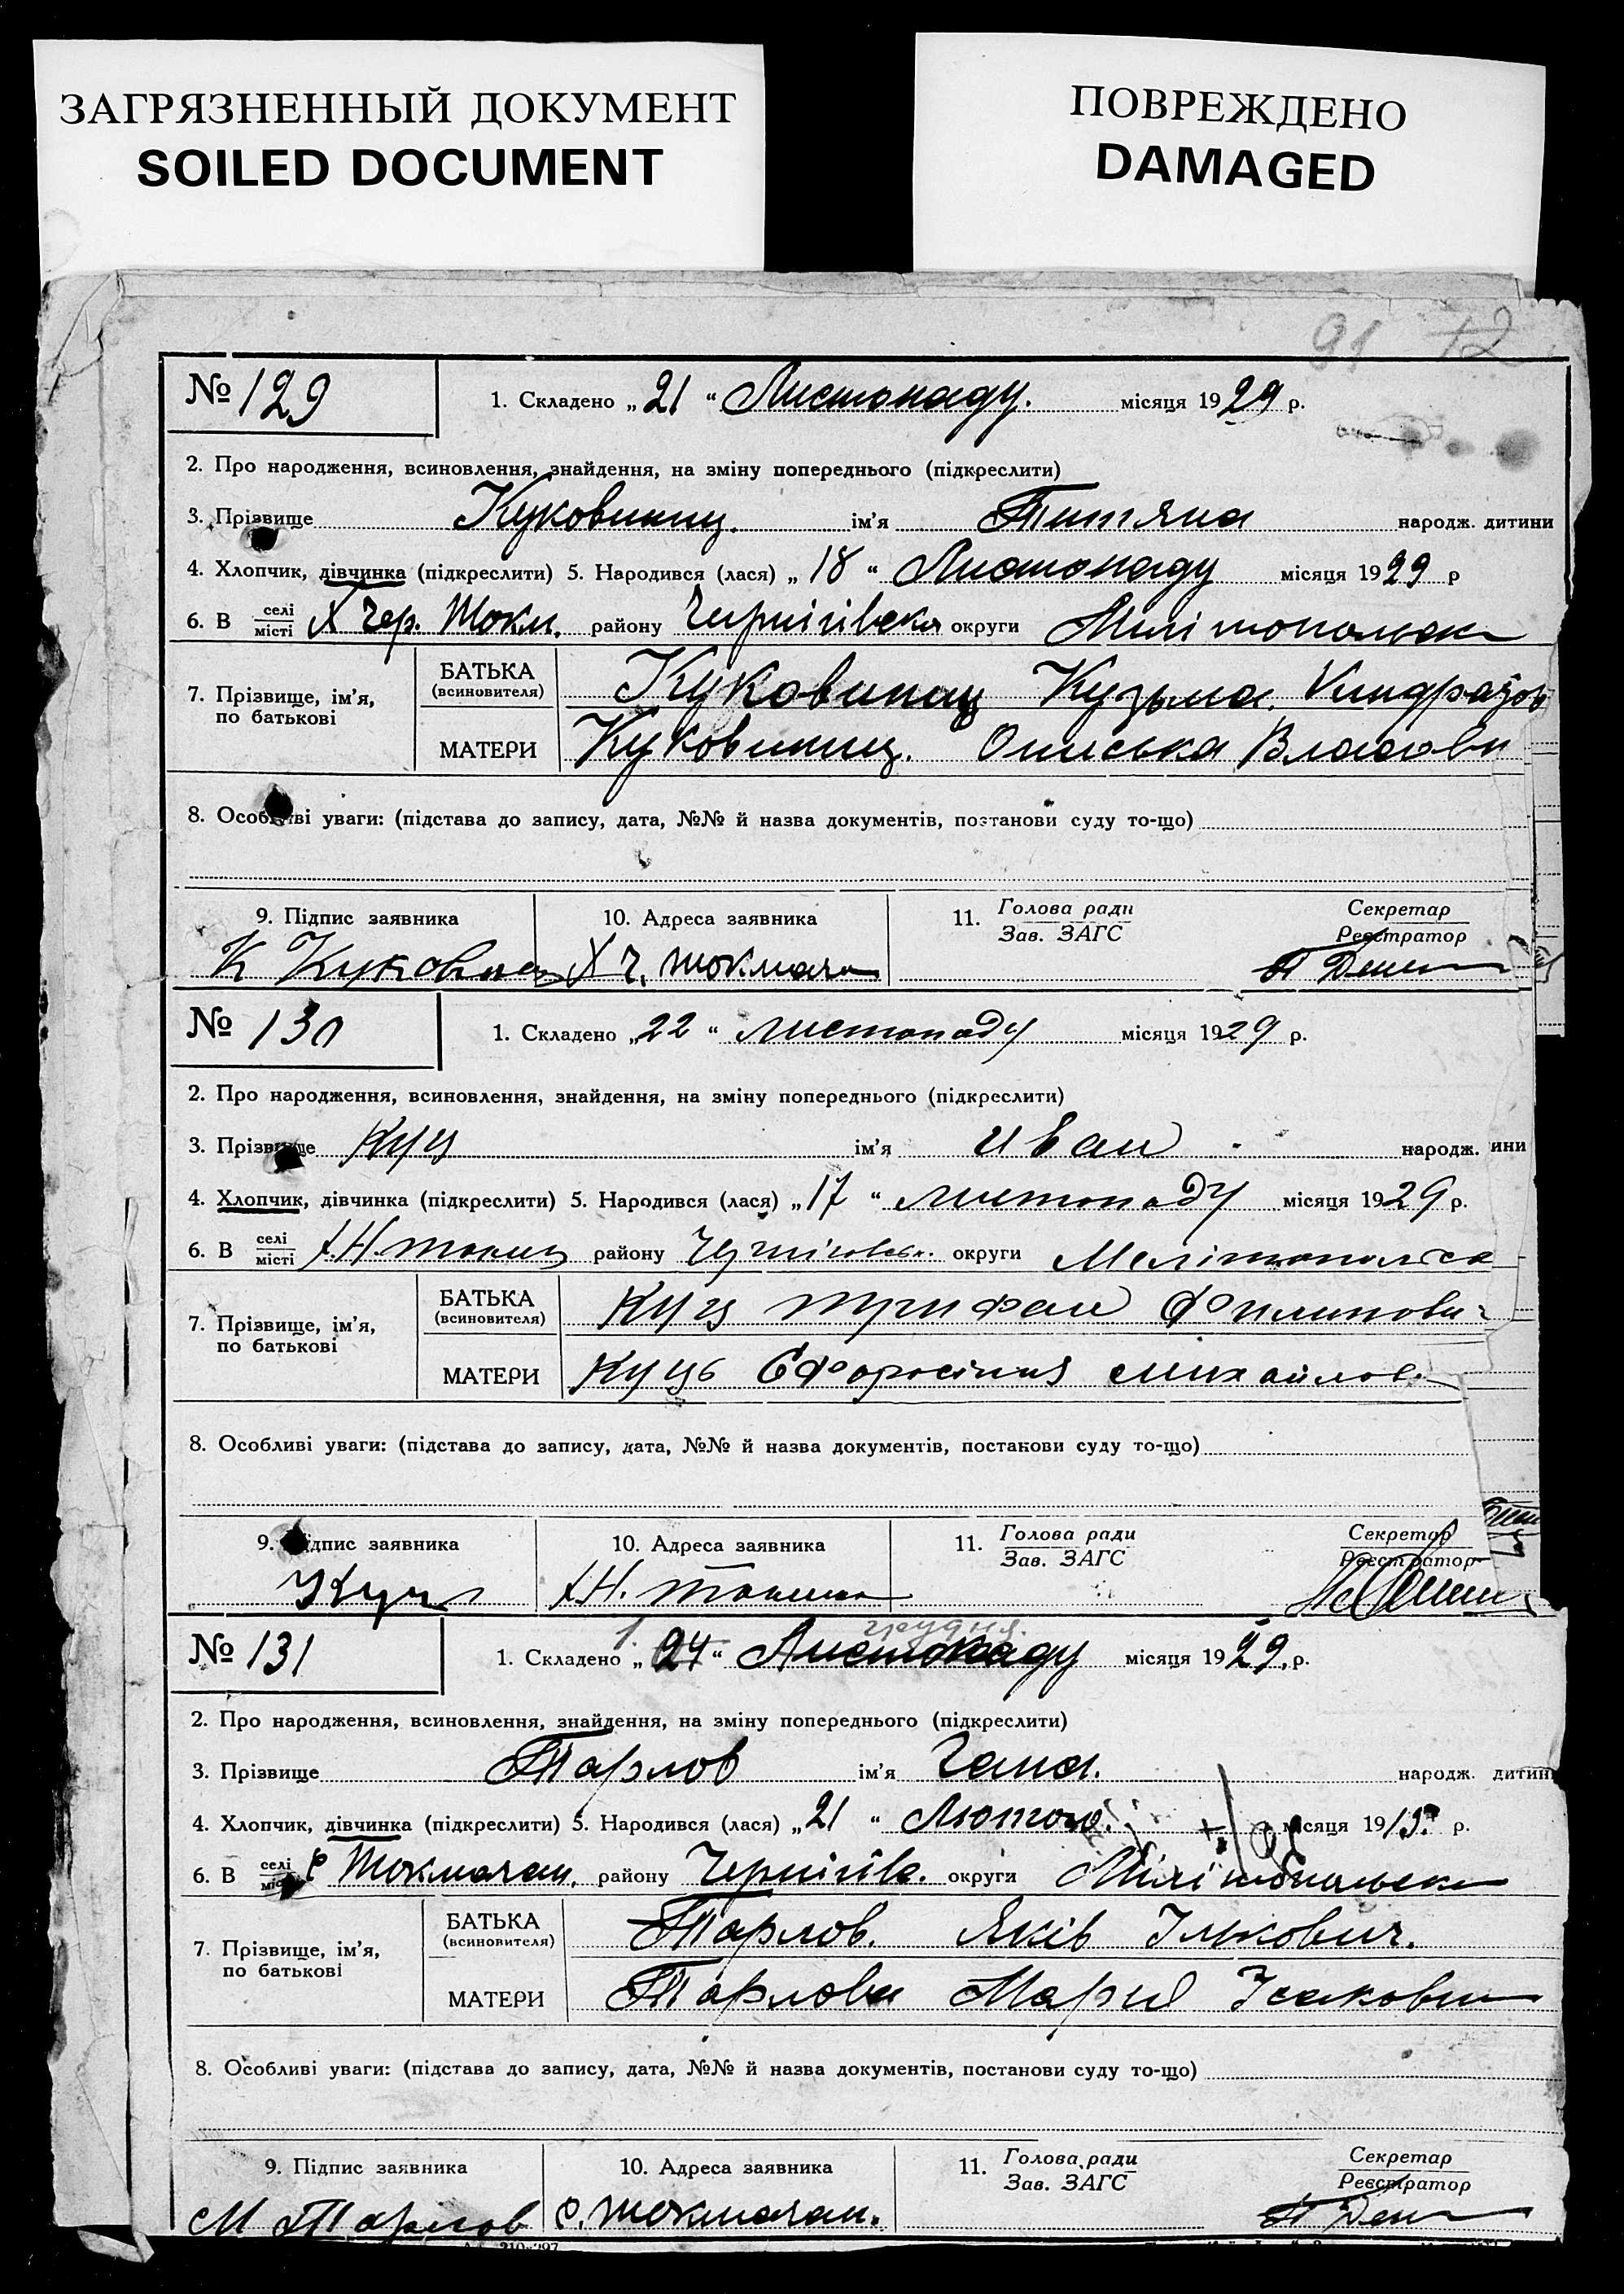 ЗАГРЯЗНЕННЫЙ ДОКУМЕНТ
SOILED DOCUMENT
ПОВРЕЖДЕНО
DAMAGED
91 12
№ 129
1. Складено „ 21 “ Листопаду. місяця 1929 р.
2. Про народження, всиновлення, знайдення, на зміну попереднього (підкреслити)
3. Прізвище Куковиниц. ім'я Титяна народж. дитини
4. Хлопчик, дівчинка (підкреслити) 5. Народився (лася) „ 18 “ Листопаду місяця 1929 р
6. В селі/місті Х Чер. Токм. району Чернігівська округи Мелітопольск
7. Прізвище, ім'я, по батькові
БАТЬКА (всиновителя) Кузьма.
МАТЕРИ Куковиниц. Ониська Власовн
8. Особливі уваги: (підстава до запису, дата, №№ й назва документів, постанови суду то-що)
9. Підпис заявника
10. Адреса заявника
11. Голова ради
Зав. ЗАГС
Секретар
Реєстратор
К Х Ч. Токмача
№ 130
1. Складено „ 22 “ листопаду місяця 1929 р.
2. Про народження, всиновлення, знайдення, на зміну попереднього (підкреслити)
3. Прізвище Куц ім'я Иван народж. ини
4. Хлопчик, дівчинка (підкреслити) 5. Народився (лася) „ 17 “ листопаду місяця 1929 р.
6. В селі/місті х.Н. району округи Мелітопольск
7. Прізвище, ім'я, по батькові
БАТЬКА (всиновителя) Куц Трифан Филипови
МАТЕРИ Куць Єфоросіния Михайлов.
8. Особливі уваги: (підстава до запису, дата, №№ й назва документів, постанови суду то-що)
9. Підпис заявника
10. Адреса заявника
11. Голова ради
Зав. ЗАГС
Секретар
Реєстратор
Куц х.Н.
1. грудня.
№ 131
1. Складено „ 24 “ Листопаду місяця 1929, р.
2. Про народження, всиновлення, знайдення, на зміну попереднього (підкреслити)
3. Прізвище Тарлов ім'я Гана. народж. дитини
4. Хлопчик, дівчинка (підкреслити) 5. Народився (лася) „ 21 “ Лютого. місяця 1913 р.
6. В селі/місті С Токмачан. району Чернігів. округи Мелітопольск
7. Прізвище, ім'я, по батькові
БАТЬКА (всиновителя) Тарлов. Яків Ількович.
МАТЕРИ Тарлова Мария Ісаковн
8. Особливі уваги: (підстава до запису, дата, №№ й назва документів, постанови суду то-що)
9. Підпис заявника
10. Адреса заявника
11. Голова ради
Зав. ЗАГС
Секретар
Реєстратор
М Тарлов с. Токмачан.